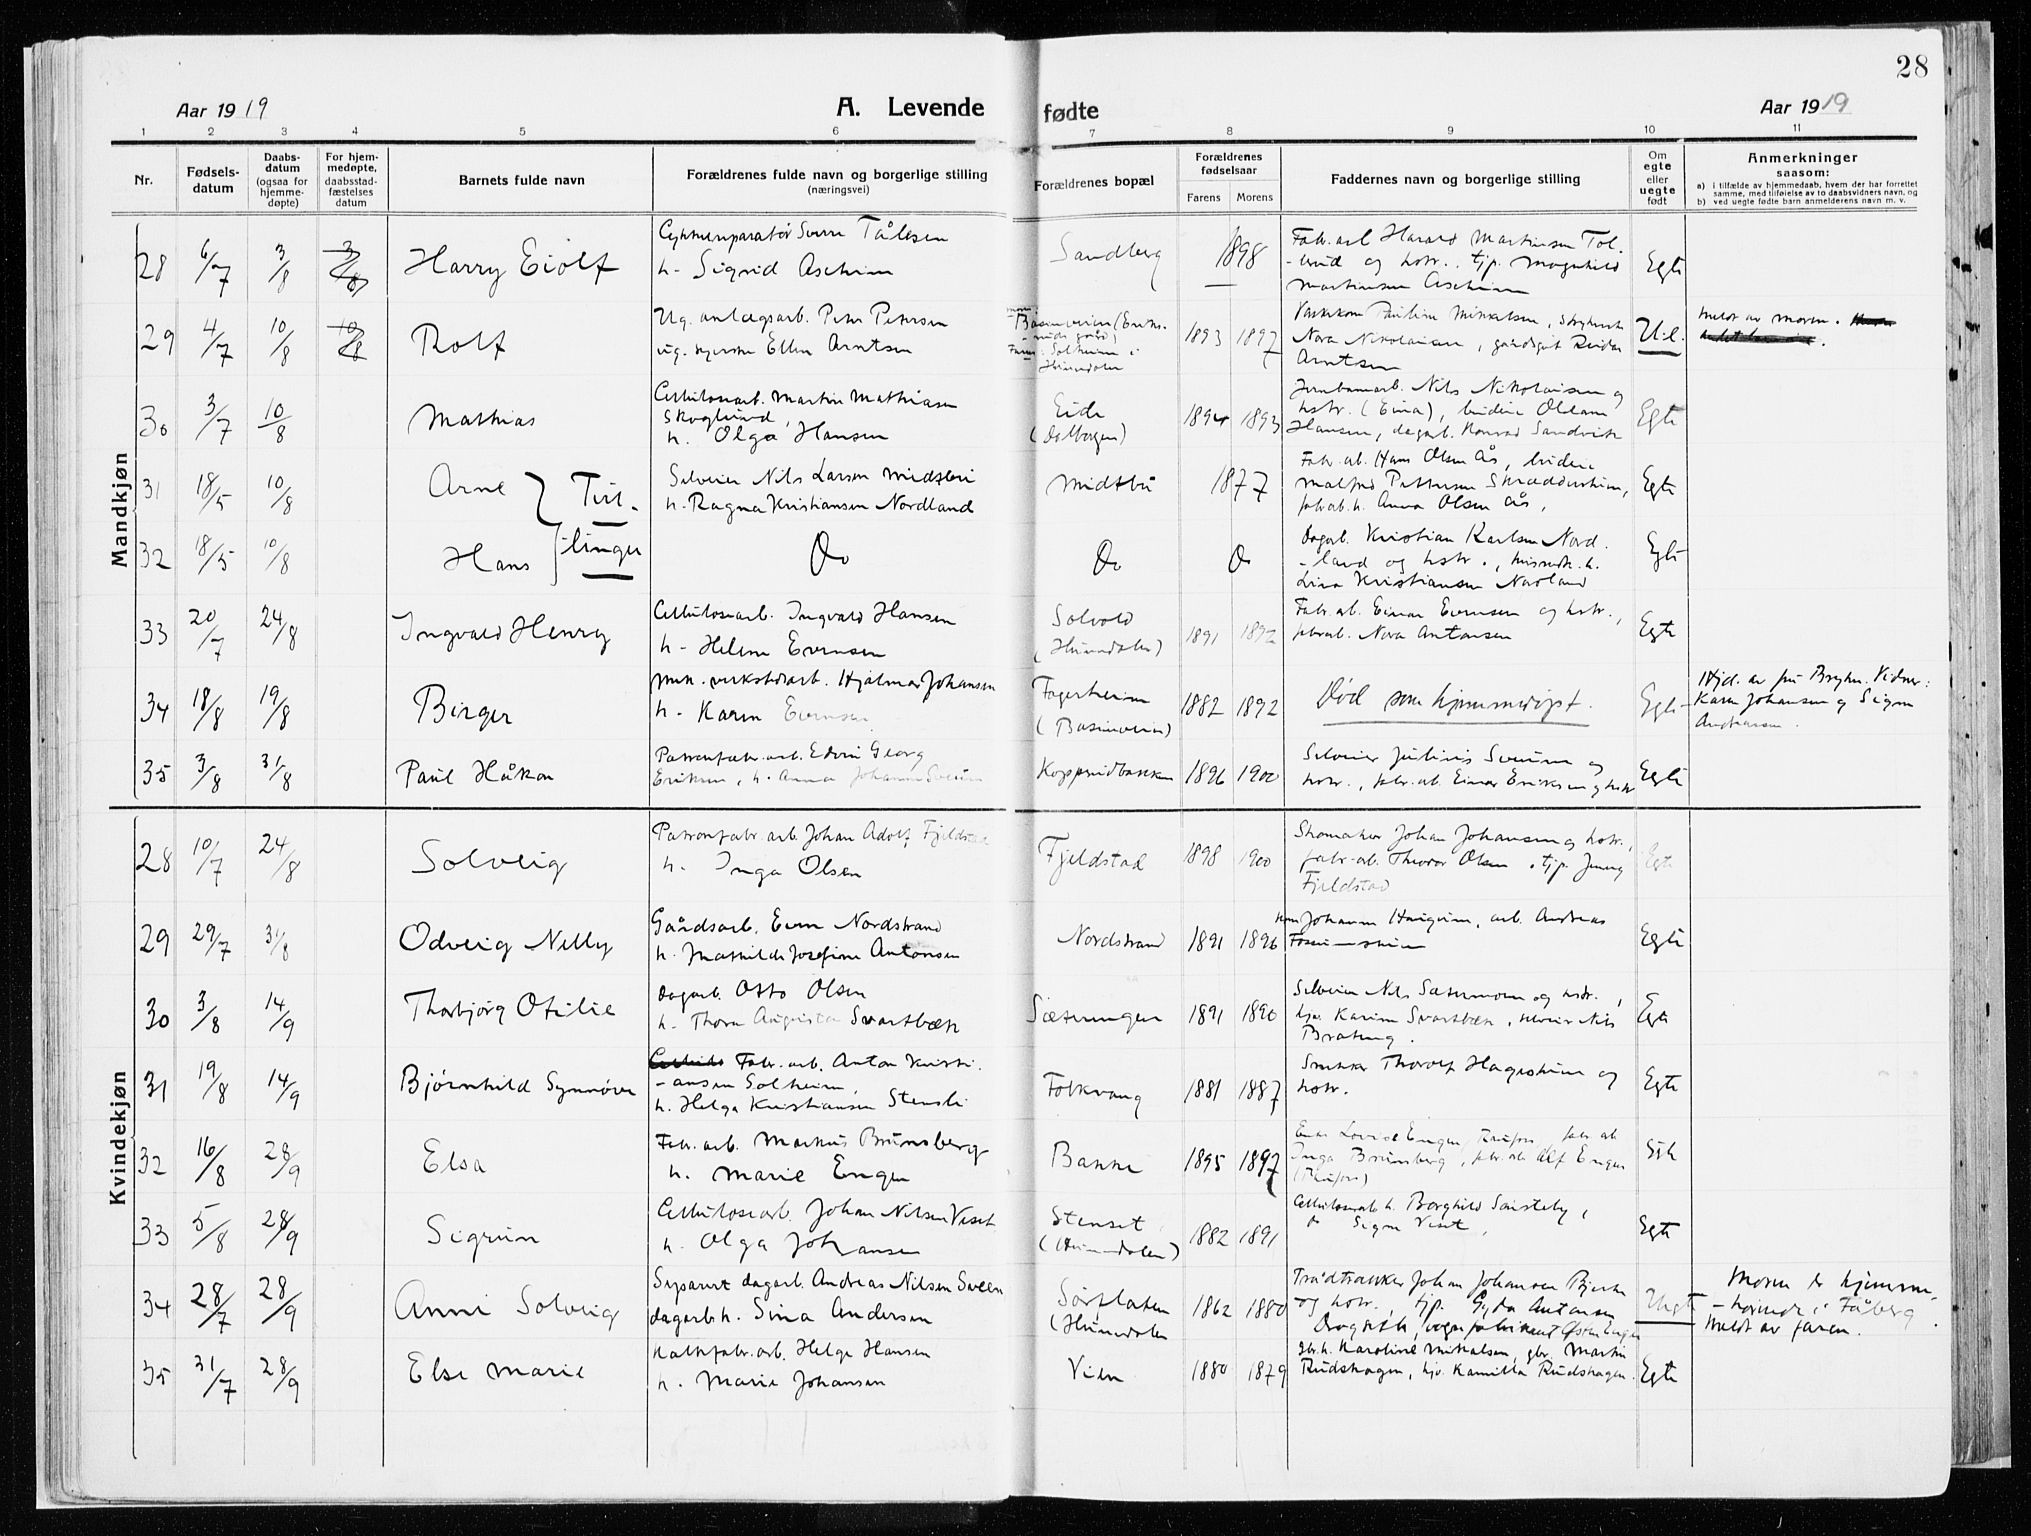 28
Aar 1919
A. Levende fødte
Aar 1919
1 2 3 4 5 6 7 8 9 10 11
Nr.
Fødsels-
datum
Daabs-
datum
(ogsaa for
hjemme-
døpte)
For hjem-
medøpte,
daabsstad-
fæstelses
datum
Barnets fulde navn
Forældrenes fulde navn og borgerlige stilling
(næringsvei)
Forældrenes bopæl
Forældrenes
fødselsaar
Farens Morens
Faddernes navn og borgerlige stilling
Om
egte
eller
uegte
født
Anmerkninger
saasom:
a) i tilfælde av hjemmedaab, hvem der har forrettet
samme, med tilføielse av to daabsvidners navn, og
b) ved uegte fødte barn anmelderens navn m. v.
Mandkjøn
28 6/7 3/8 3/8 Harry Eiolf
h. Sigrid Ascheim
Sandberg 1898
Fabr. arb Harald Martinsen Tol-
rud og hstr., tjp. Magnhild
Martinsen Ascheim
Egte
29 4/7 10/8 10/8 Rolf
Ug. anlægsarb. Peter Petersen
ug. syerske Ellen Arntsen
1893 1897
Nora Nikolaisen, gaardsgut Reidar
Arntsen
U.e.
Meldt av moren.
30 3/7 10/8 Mathias
Cellulosearb. Martin Mathiasen
Skoglund,
h. Olga Hansen
Eide
(Dalborgen)
1894 1893
Jernbanearb. Nils Nikolaisen og
hstr. (Eina),
Hansen, dagarb. Konrad Sandvik
Egte
31 18/5 10/8 Arne } Tvil-
Selveier Nils Larsen Midtbøi
h. Ragna Kristiansen Nordland
Midtbø 1877
Fabr. arb. Hans Olsen Ås,
Malfred Pettersen Skrædderheim,
fabrarb. h. Anna Olsen Ås,
Egte
32 18/5 10/8 Hans } linger
Do Do Do
Dagarb. Kristian Karlsen Nord-
land og hstr.,
Lina Kristiansen Norland
Egte
33 20/7 24/8 Ingvald Henry
Cellulosearb. Ingvald Hansen
h. Helene Evensen
Solvold
(Hunndalen)
1891 1892
Fabr. arb. Einar Evensen og hstr.,
fabrarb. Nora Antonsen
Egte
34 18/8 19/8 Birger
mek. verkstedarb. Hjalmar Johansen
h. Karen Evensen
Fagerheim
1882 1892
Død som hjemmedøpt.
Egte
Hjd. av fru Bryhn. Vidner:
Karen Johansen og Signe
Andreasen.
35 3/8 31/8 Paul Håkon
Patronfabr. arb. Edvin Georg
Eriksen, h. Anna Johanne Sveum
Kopperudbakken 1896 1900
Selveier Julius Sveum og
hstr., fabr. arb. Einar Eriksen og hstr
Egte
Kvindekjøn
28 10/7 24/8 Solveig
Patronfabr. arb. Johan Adolf Fjeldstad
h. Inga Olsen
Fjeldstad 1898 1900
Skomaker Johan Johansen og hstr.,
fabr. arb. Thorvar Olsen, tjp. Jenny
Fjeldstad
Egte
29 29/7 31/8 Odveig Nelly
Gårdsarb. Even Nordstrand
h. Mathilde Josefine Antonsen
Nordstrand 1891 1896
arb. Andreas
Fossumsheim
Egte
30 3/8 14/9 Thorbjörg Otilie
Dagarb. Otto Olsen
h. Thora Augusta Svartbæk
Sæterungen 1891 1890
Selveier Nils Sætermoen og hstr.,
hjv. Karine Svartbæk, selveier Nils
Bratung.
Egte
31 19/8 14/9 Bjørnhild Synnøve
Fabr. arb. Anton Kristi-
ansen Solheim,
h. Helga Kristiansen Stensli
Folkvang 1881 1887
Snekker Thorolf Hageheim og
hstr.
Egte
32 16/8 28/9 Elsa
Fabr. arb. Markus Brunsberg
h. Marie Engen
Bakke 1895 1897
Inga Brunsberg, fabr. arb Alf Engen
(Raufoss)
Egte
33 5/8 28/9 Sigrun
Cellulosearb. Johan Nilsen Veset
h. Olga Johansen
Stenset
(Hunndalen)
1882 1891
Cellulosearb. h. Borghild Saisteby,
Do Signe Veset,
Egte
34 28/7 28/9 Anni Solveig
Separert dagarb. Andreas Nilsen Sveen
dagarb. h. Sina Andersen
Sørflaten
(Hunndalen
1862 1880
Trådtrækker Johan Johansen Bjerke
og hstr., tjp. Gyda Antonsen
Uegte
Moren er hjemme-
hørende i Fåberg.
Meldt av faren.
35 31/7 28/9 Else Marie
Kalkfabr. arb. Helge Hansen
h. Marie Johansen
Vien 1880 1879
gbr. h. Karoline Mikkelsen, gbr. Martin
Rudshagen, hjv. Kamilla Rudshagen.
Egte